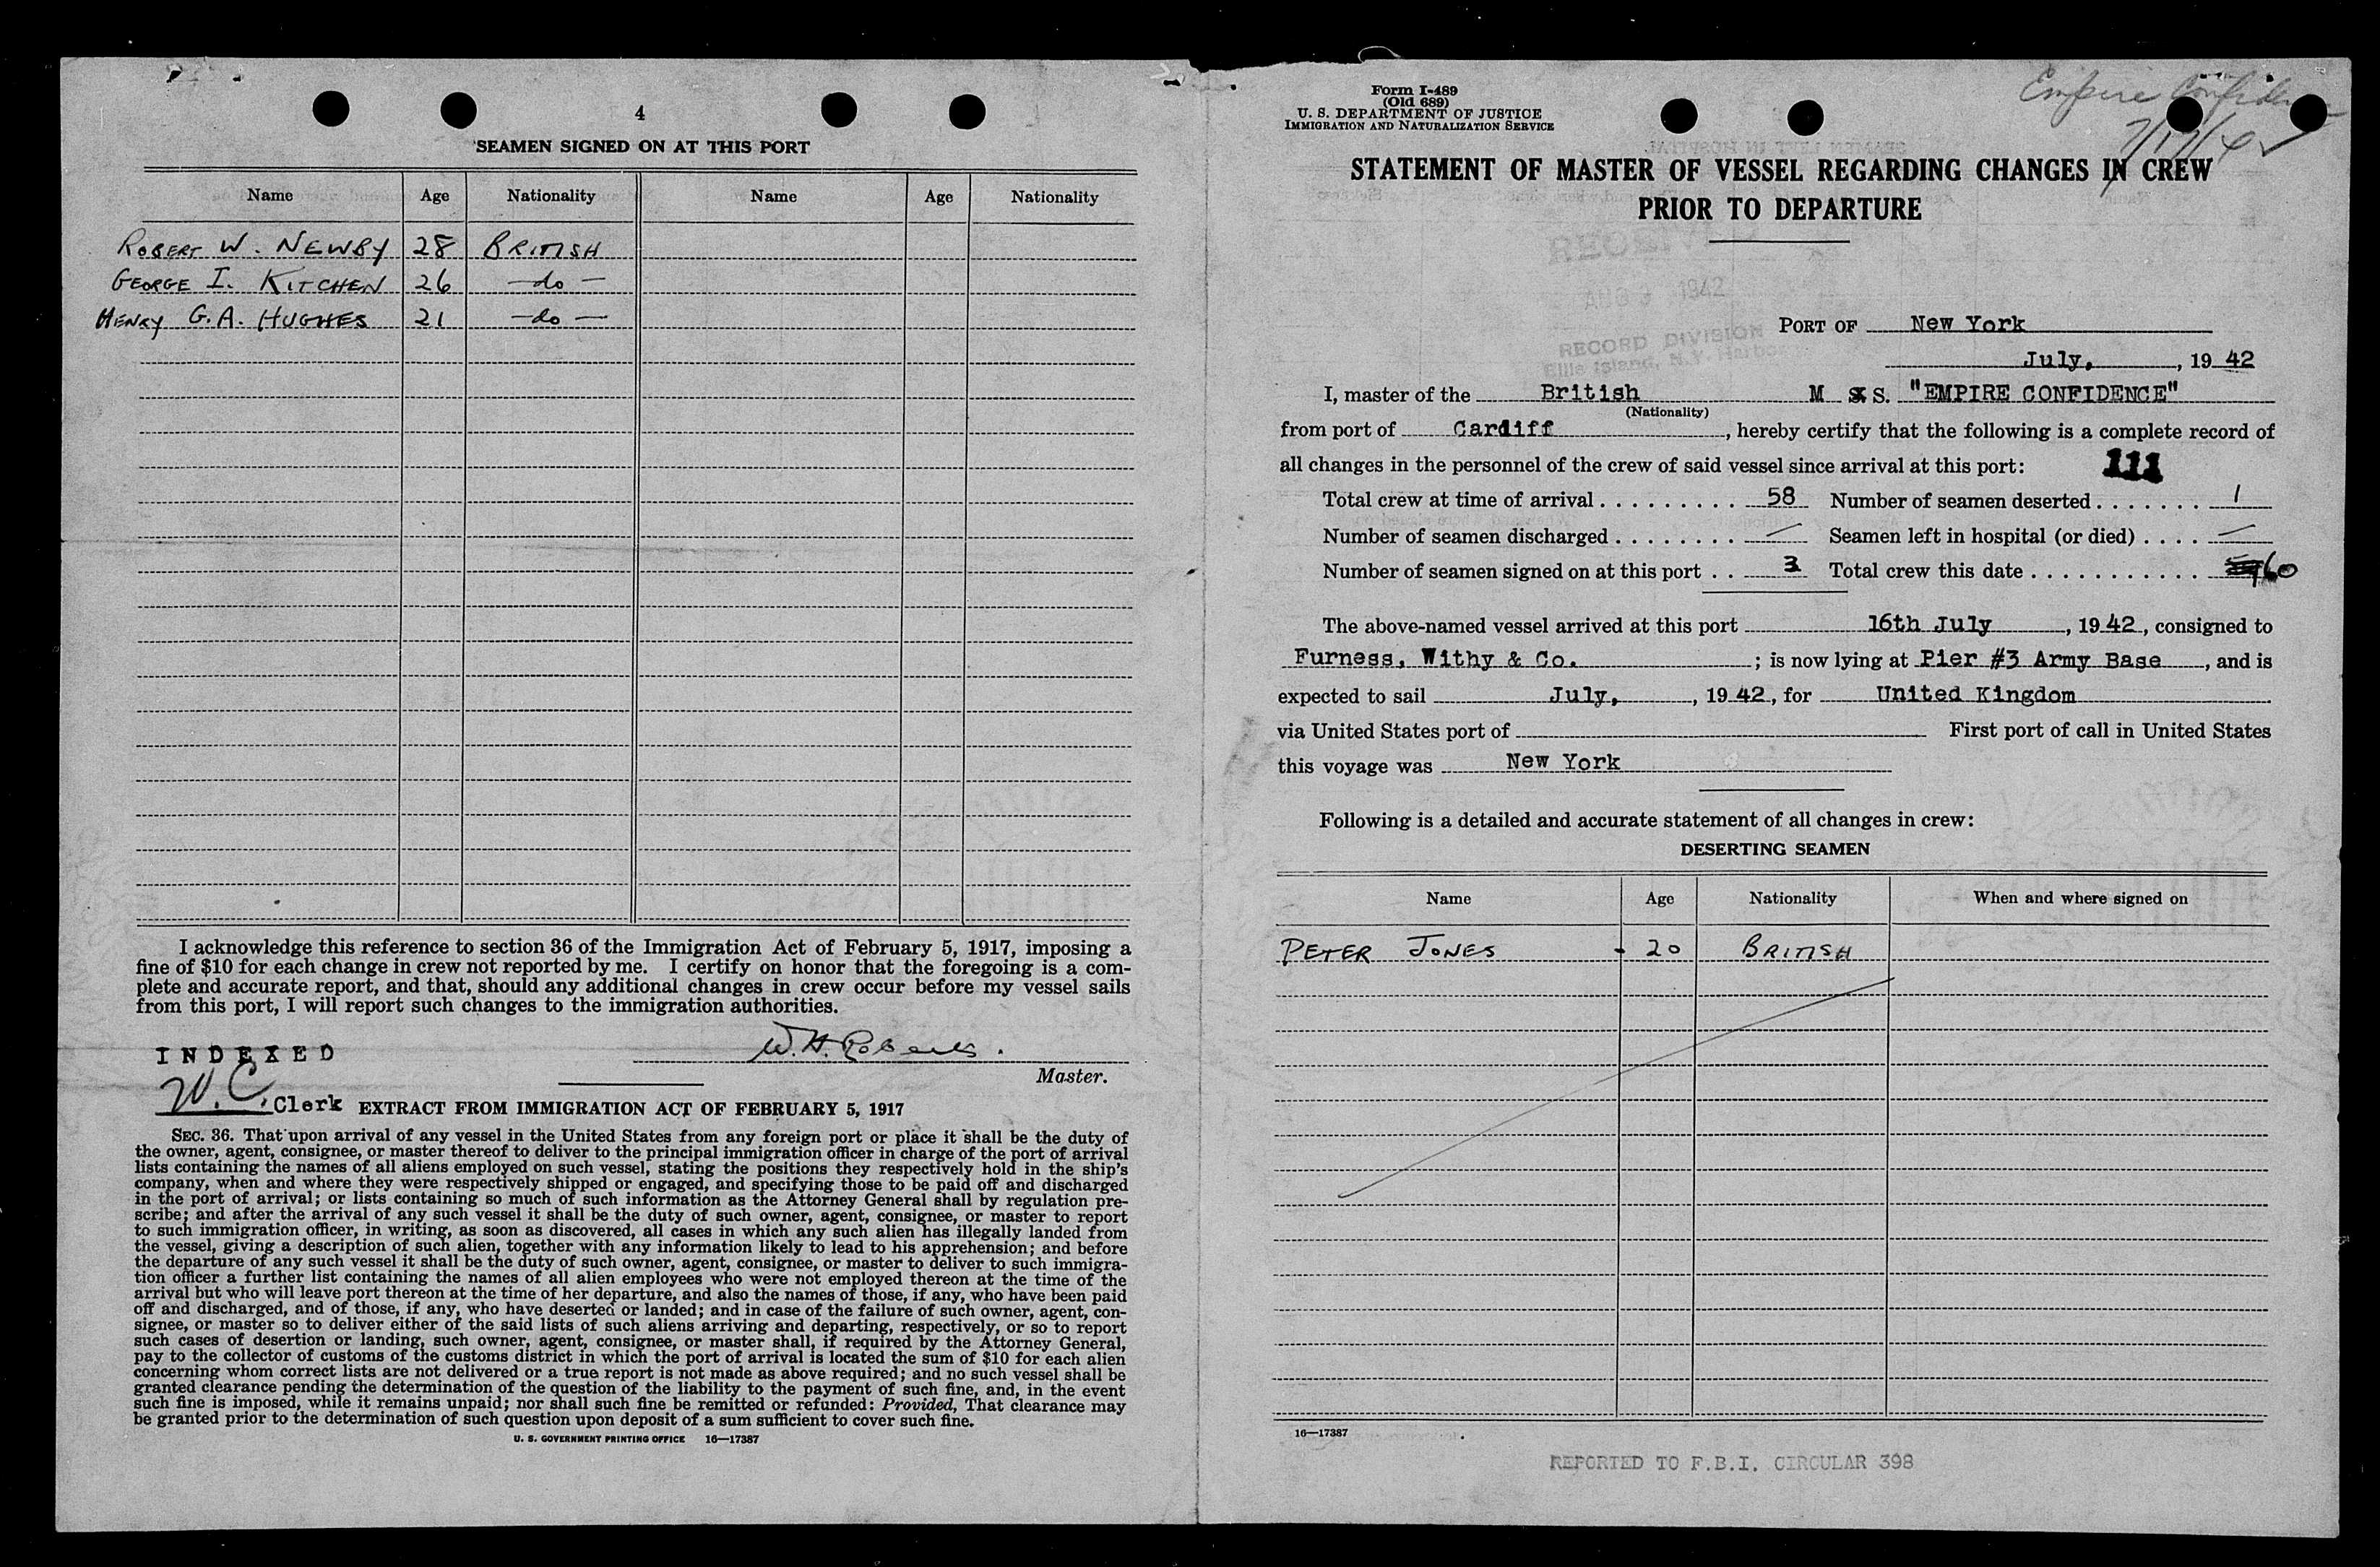 4
SEAMEN SIGNED ON AT THIS PORT
Name Age Nationality Name Age Nationality
ROBERT W. NEWBY 28 BRITISH
GEORGE I. KITCHEN 26 —do—
HENRY G.A. HUGHES 21 —do—
I acknowledge this reference to section 36 of the Immigration Act of February 5, 1917, imposing a
fine of $10 for each change in crew not reported by me. I certify on honor that the foregoing is a com-
plete and accurate report, and that, should any additional changes in crew occur before my vessel sails
from this port, I will report such changes to the immigration authorities.
INDEXED
W. H. Roberts.
Master.
W.C. Clerk
EXTRACT FROM IMMIGRATION ACT OF FEBRUARY 5, 1917
SEC. 36. That upon arrival of any vessel in the United States from any foreign port or place it shall be the duty of
the owner, agent, consignee, or master thereof to deliver to the principal immigration officer in charge of the port of arrival
lists containing the names of all aliens employed on such vessel, stating the positions they respectively hold in the ship's
company, when and where they were respectively shipped or engaged, and specifying those to be paid off and discharged
in the port of arrival; or lists containing so much of such information as the Attorney General shall by regulation pre-
scribe; and after the arrival of any such vessel it shall be the duty of such owner, agent, consignee, or master to report
to such immigration officer, in writing, as soon as discovered, all cases in which any such alien has illegally landed from
the vessel, giving a description of such alien, together with any information likely to lead to his apprehension; and before
the departure of any such vessel it shall be the duty of such owner, agent, consignee, or master to deliver to such immigra-
tion officer a further list containing the names of all alien employees who were not employed thereon at the time of the
arrival but who will leave port thereon at the time of her departure, and also the names of those, if any, who have been paid
off and discharged, and of those, if any, who have deserted or landed; and in case of the failure of such owner, agent, con-
signee, or master so to deliver either of the said lists of such aliens arriving and departing, respectively, or so to report
such cases of desertion or landing, such owner, agent, consignee, or master shall, if required by the Attorney General,
pay to the collector of customs of the customs district in which the port of arrival is located the sum of $10 for each alien
concerning whom correct lists are not delivered or a true report is not made as above required; and no such vessel shall be
granted clearance pending the determination of the question of the liability to the payment of such fine, and, in the event
such fine is imposed, while it remains unpaid; nor shall such fine be remitted or refunded: Provided, That clearance may
be granted prior to the determination of such question upon deposit of a sum sufficient to cover such fine.
U. S. GOVERNMENT PRINTING OFFICE 16—17387
Form I-489
(Old 689)
U. S. DEPARTMENT OF JUSTICE
IMMIGRATION AND NATURALIZATION SERVICE
Empire
7/17/42
STATEMENT OF MASTER OF VESSEL REGARDING CHANGES IN CREW
PRIOR TO DEPARTURE
RECEIVED
AUG 1942
RECORD DIVISION
Ellis Island, N.Y. Harbor
PORT OF New York
July, , 19 42
I, master of the British M S. "EMPIRE CONFIDENCE"
(Nationality)
from port of Cardiff , hereby certify that the following is a complete record of
all changes in the personnel of the crew of said vessel since arrival at this port: 111
Total crew at time of arrival . . . . . . . . . 58 Number of seamen deserted . . . . . . . 1
Number of seamen discharged . . . . . . . . — Seamen left in hospital (or died) . . . . —
Number of seamen signed on at this port . . 3 Total crew this date . . . . . . . . . . . 60
The above-named vessel arrived at this port 16th July , 19 42, consigned to
Furness, Withy & Co. ; is now lying at Pier #3 Army Base , and is
expected to sail July, , 19 42, for United Kingdom
via United States port of First port of call in United States
this voyage was New York
Following is a detailed and accurate statement of all changes in crew:
DESERTING SEAMEN
Name Age Nationality When and where signed on
PETER JONES - 20 BRITISH
16—17387
REPORTED TO F.B.I. CIRCULAR 398